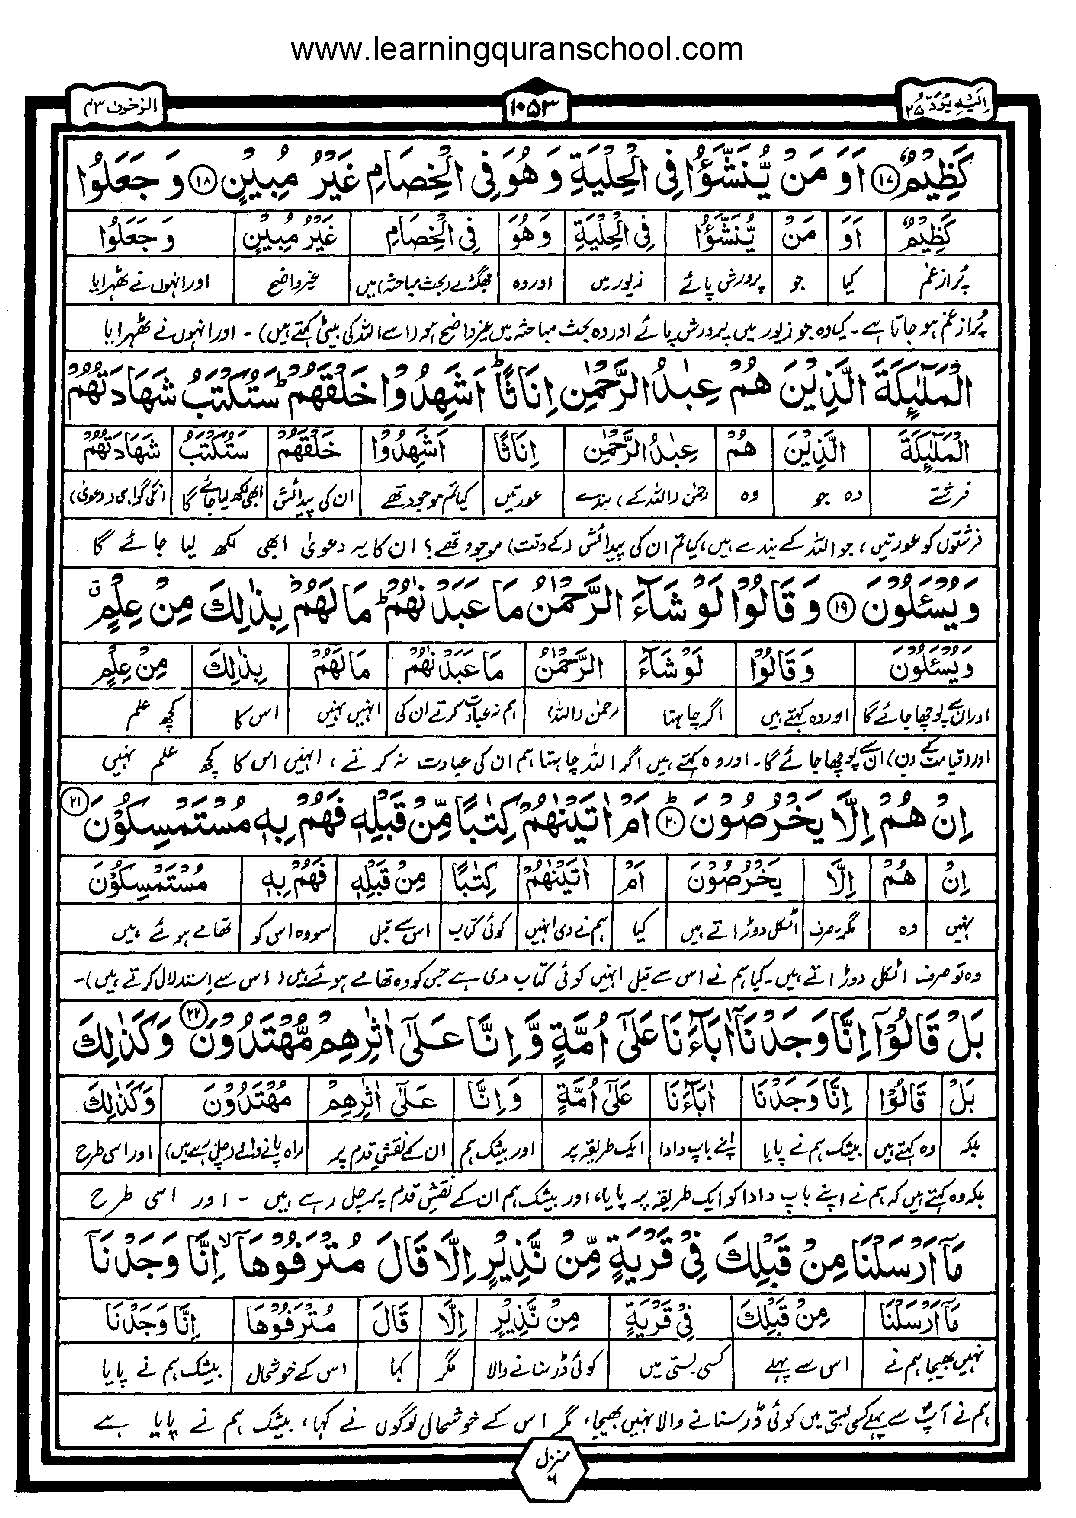 www.learningquranschool.com
الزخرف ٤٣
١٠٥٣
اِلَيْهِ يُرَدُّ ٢٥
كَظِيْمٌ ۝١٧ اَوَ مَنْ يُّنَشَّؤُا فِى الْحِلْيَةِ وَ هُوَ فِى الْخِصَامِ غَيْرُ مُبِيْنٍ ۝١٨ وَ جَعَلُوا
كَظِيْمٌ اَوَ مَنْ يُّنَشَّؤُا فِى الْحِلْيَةِ وَ هُوَ فِى الْخِصَامِ غَيْرُ مُبِيْنٍ وَ جَعَلُوا
پُر از غم کیا جو پرورش پائے زیور میں اور وہ جھگڑے (بحث مباحثہ) میں غیر واضح اور انہوں نے ٹھہرایا
پُر از غم ہو جاتا ہے۔ کیا وہ جو زیور میں پرورش پائے اور وہ بحث مباحثہ میں غیر واضح ہو (اسے اللہ کی بیٹی کہتے ہیں)۔ اور انہوں نے ٹھہرایا
الْمَلٰٓئِكَةَ الَّذِيْنَ هُمْ عِبٰدُ الرَّحْمٰنِ اِنَاثًا ؕ اَشَهِدُوْا خَلْقَهُمْ ؕ سَتُكْتَبُ شَهَادَتُهُمْ
الْمَلٰٓئِكَةَ الَّذِيْنَ هُمْ عِبٰدُ الرَّحْمٰنِ اِنَاثًا اَشَهِدُوْا خَلْقَهُمْ سَتُكْتَبُ شَهَادَتُهُمْ
فرشتے وہ جو وہ رحمٰن (اللہ کے) بندے عورتیں کیا تم موجود تھے ان کی پیدائش ابھی لکھ لیا جائے گا انکی گواہی (دعویٰ)
فرشتوں کو عورتیں، جو اللہ کے بندے ہیں، کیا تم ان کی پیدائش (کے وقت) موجود تھے؟ ان کا یہ دعویٰ ابھی لکھ لیا جائے گا
وَ يُسْئَلُوْنَ ۝١٩ وَ قَالُوْا لَوْ شَآءَ الرَّحْمٰنُ مَا عَبَدْنٰهُمْ ؕ مَا لَهُمْ بِذٰلِكَ مِنْ عِلْمٍ ۗ
وَ يُسْئَلُوْنَ وَ قَالُوْا لَوْ شَآءَ الرَّحْمٰنُ مَا عَبَدْنٰهُمْ مَا لَهُمْ بِذٰلِكَ مِنْ عِلْمٍ
اور ان سے پوچھا جائے گا اور وہ کہتے ہیں اگر چاہتا رحمٰن (اللہ) ہم نہ عبادت کرتے ان کی انہیں نہیں اس کا کچھ علم
اور (قیامت کے دن) ان سے پوچھا جائے گا۔ اور وہ کہتے ہیں اگر اللہ چاہتا ہم ان کی عبادت نہ کرتے، انہیں اس کا کچھ علم نہیں
اِنْ هُمْ اِلَّا يَخْرُصُوْنَ ؕ ۝٢٠ اَمْ اٰتَيْنٰهُمْ كِتٰبًا مِّنْ قَبْلِهٖ فَهُمْ بِهٖ مُسْتَمْسِكُوْنَ ۝٢١
اِنْ هُمْ اِلَّا يَخْرُصُوْنَ اَمْ اٰتَيْنٰهُمْ كِتٰبًا مِّنْ قَبْلِهٖ فَهُمْ بِهٖ مُسْتَمْسِكُوْنَ
نہیں وہ مگر صرف اٹکل دوڑاتے ہیں کیا ہم نے دی انہیں کوئی کتاب اس سے قبل سو وہ اس کو تھامے ہوئے ہیں
وہ تو صرف اٹکل دوڑاتے ہیں۔ کیا ہم نے اس سے قبل انہیں کوئی کتاب دی ہے جس کو وہ تھامے ہوئے ہیں (اس سے استدلال کرتے ہیں)۔
بَلْ قَالُوْٓا اِنَّا وَجَدْنَآ اٰبَآءَنَا عَلٰٓى اُمَّةٍ وَّ اِنَّا عَلٰٓى اٰثٰرِهِمْ مُّهْتَدُوْنَ ۝٢٢ وَ كَذٰلِكَ
بَلْ قَالُوْٓا اِنَّا وَجَدْنَا اٰبَآءَنَا عَلٰٓى اُمَّةٍ وَ اِنَّا عَلٰٓى اٰثٰرِهِمْ مُّهْتَدُوْنَ وَ كَذٰلِكَ
بلکہ وہ کہتے ہیں بیشک ہم نے پایا اپنے باپ دادا ایک طریقہ پر اور بیشک ہم ان کے نقش قدم پر راہ پانے والے (چل رہے ہیں) اور اسی طرح
بلکہ وہ کہتے ہیں کہ ہم نے اپنے باپ دادا کو ایک طریقہ پر پایا، اور بیشک ہم ان کے نقش قدم پر چل رہے ہیں۔ اور اسی طرح
مَآ اَرْسَلْنَا مِنْ قَبْلِكَ فِىْ قَرْيَةٍ مِّنْ نَّذِيْرٍ اِلَّا قَالَ مُتْرَفُوْهَآ ۙ اِنَّا وَجَدْنَآ
مَآ اَرْسَلْنَا مِنْ قَبْلِكَ فِىْ قَرْيَةٍ مِنْ نَّذِيْرٍ اِلَّا قَالَ مُتْرَفُوْهَا اِنَّا وَجَدْنَا
نہیں بھیجا ہم نے اس سے پہلے کسی بستی میں کوئی ڈر سنانے والا مگر کہا اس کے خوشحال بیشک ہم نے پایا
ہم نے آپ سے پہلے کسی بستی میں کوئی ڈر سنانے والا نہیں بھیجا، مگر اس کے خوشحال لوگوں نے کہا، بیشک ہم نے پایا ہے
منزل ٦